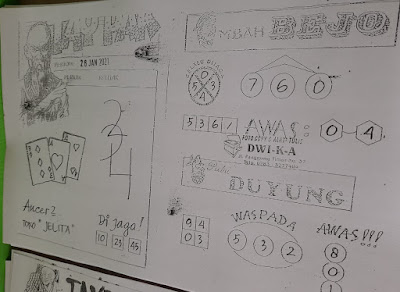 28 JAN 2021
3
2
4
Ancer2
TOKO "JELITA"
Di jaga!
10 23 45
MBAH BEJO
7 6 0
0
3
4
5
5 3 6 1
AWAS:
0 4
DWI-KA
DUYUNG
9 4
0 3
WASPADA
5 3 2
AWAS!!!
8
0
1